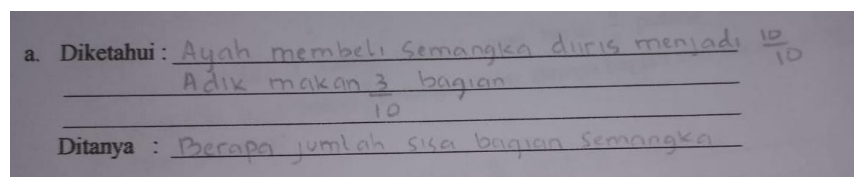 a. Diketahui : Ayah membeli semangka diiris menjadi 10/10
Adik makan 3/10 bagian
Ditanya : Berapa jumlah sisa bagian semangka